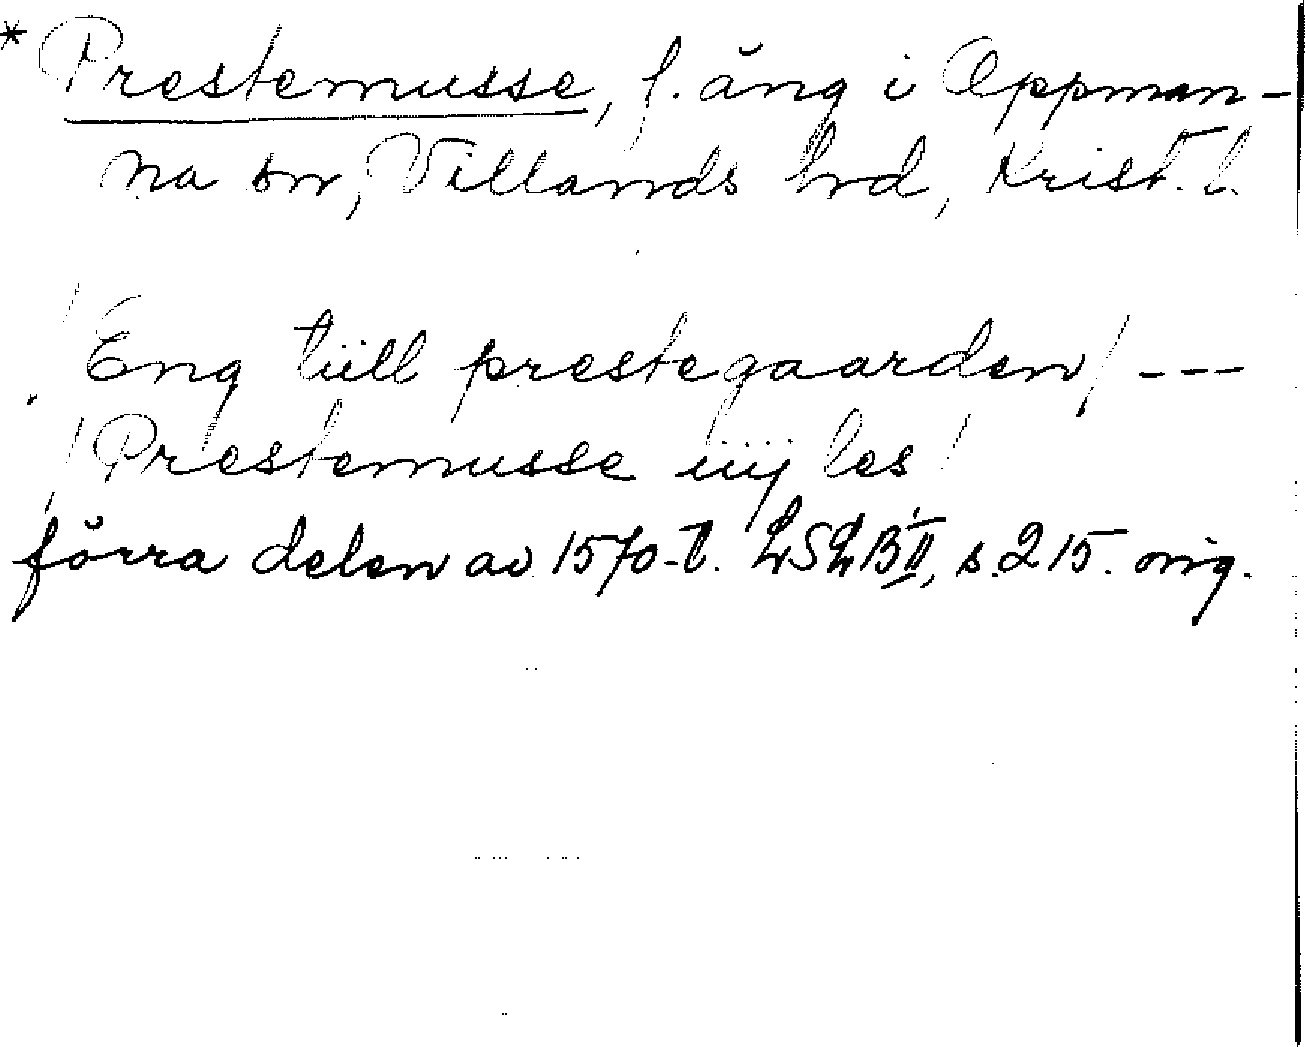 * Prestemusse, f. äng i Oppman-
na sn, Villands hd, Krist. l.
/Eng tiill prestegaarden/ ---
/Prestemusse iiij les/
förra delen av 1570-t. LSLB II, s. 215. orig.